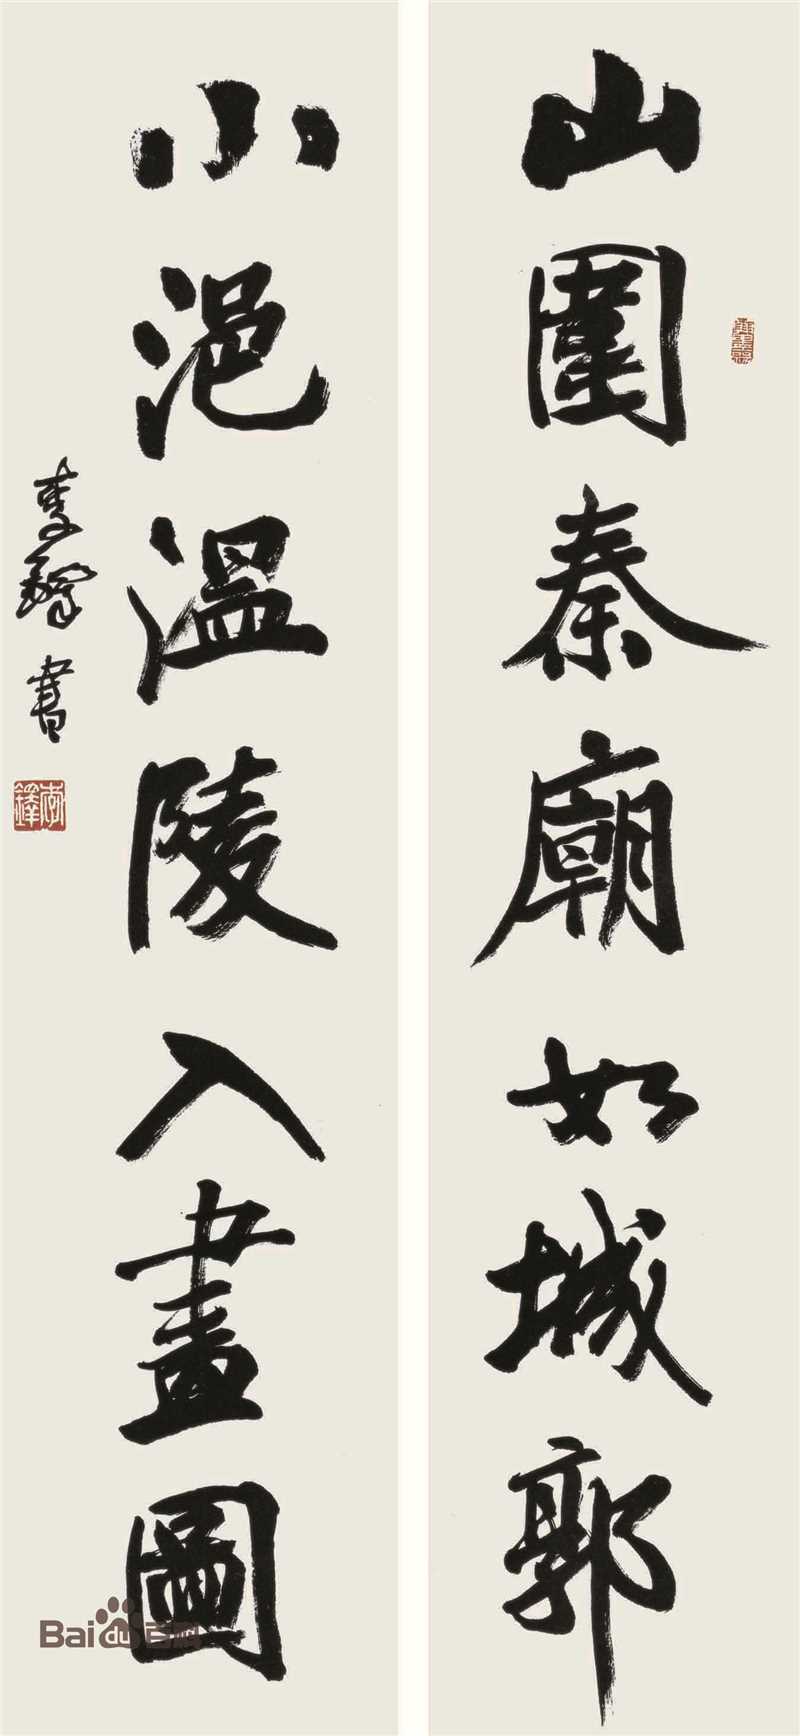 山圍秦廟如城郭
小浥溫陵入畫圖
李鐸書
李鐸
Bai du 百科